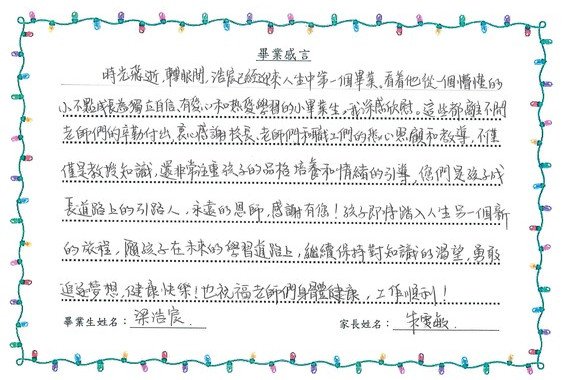 畢業感言
時光飛逝,轉眼間,浩宸已經迎來人生中第一個畢業。看着他從一個懵懂的
小不點成長為獨立自信、有愛心和熱愛學習的小畢業生,我深感欣慰。這些都離不開
老師們的辛勤付出,衷心感謝校長、老師們和職工們的悉心照顧和教導,不僅
僅是教授知識,還非常注重孩子的品格培養和情緒的引導,您們是孩子成
長道路上的引路人,永遠的恩師,感謝有您!孩子即將踏入人生另一個新
的旅程,願孩子在未來的學習道路上,繼續保持對知識的渴望,勇敢
追逐夢想,健康快樂!也祝福老師們身體健康,工作順利!
畢業生姓名:梁浩宸 家長姓名:朱雯敏